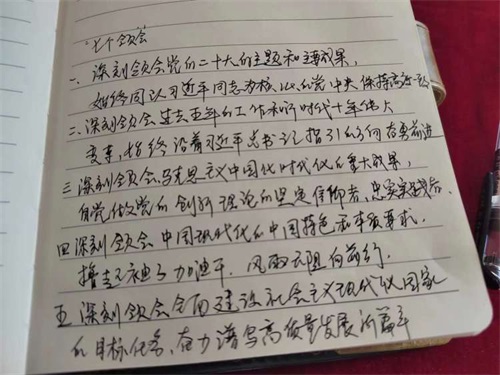 七个领会
一、深刻领会党的二十大的主题和主要成果,
始终同以习近平同志为核心的党中央保持高度一致
二、深刻领会过去五年的工作和新时代十年伟大
变革,始终沿着习近平总书记指引的方向奋勇前进
三 深刻领会马克思主义中国化时代化的重大成果,
自觉做党的创新理论的坚定信仰者、忠实实践者.
四 深刻领会中国现代化的中国特色和本质要求,
撸起袖子加油干、风雨无阻向前行.
五 深刻领会全面建设社会主义现代化国家
的目标任务、奋力谱写高质量发展新篇章